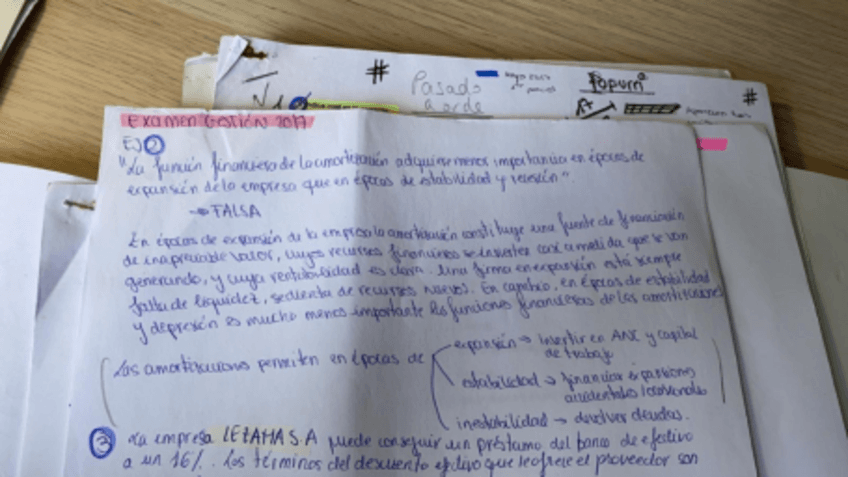 #
Pasado
Borde
#
Examen Gestión 2017
EJ 2
"La función financiera de la amortización adquiere menos importancia en épocas de
expansión de la empresa que en épocas de estabilidad y recesión".
→ FALSA
En épocas de expansión de la empresa la amortización constituye una fuente de financiación
de inapreciable valor, cuyos recursos financieros se invierten casi a medida que se van
generando, y cuya rentabilidad es clara. Una firma en expansión está siempre
falta de liquidez, sedienta de recursos nuevos. En cambio, en épocas de estabilidad
y depresión es mucho menos importante las funciones financieras de las amortizaciones
Las amortizaciones permiten en épocas de
expansión → invertir en ANC y capital
de trabajo
estabilidad → financiar expansiones
accidentales
inestabilidad → devolver deudas.
3 La empresa LEZAMA S.A puede conseguir un préstamo del banco de efectivo
a un 16%. Los términos del descuento efectivo que le ofrece el proveedor son